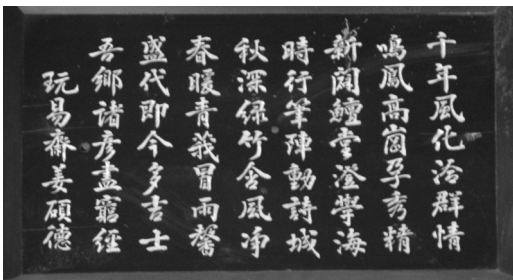 千年風化洽群情
鳴鳳高崗孕秀精
新闢鱣堂澄學海
時行筆陣動詩城
秋深綠竹含風净
春暖青莪冒雨馨
盛代即今多吉士
吾鄉諸彥盡窮經
玩易齋姜碩德